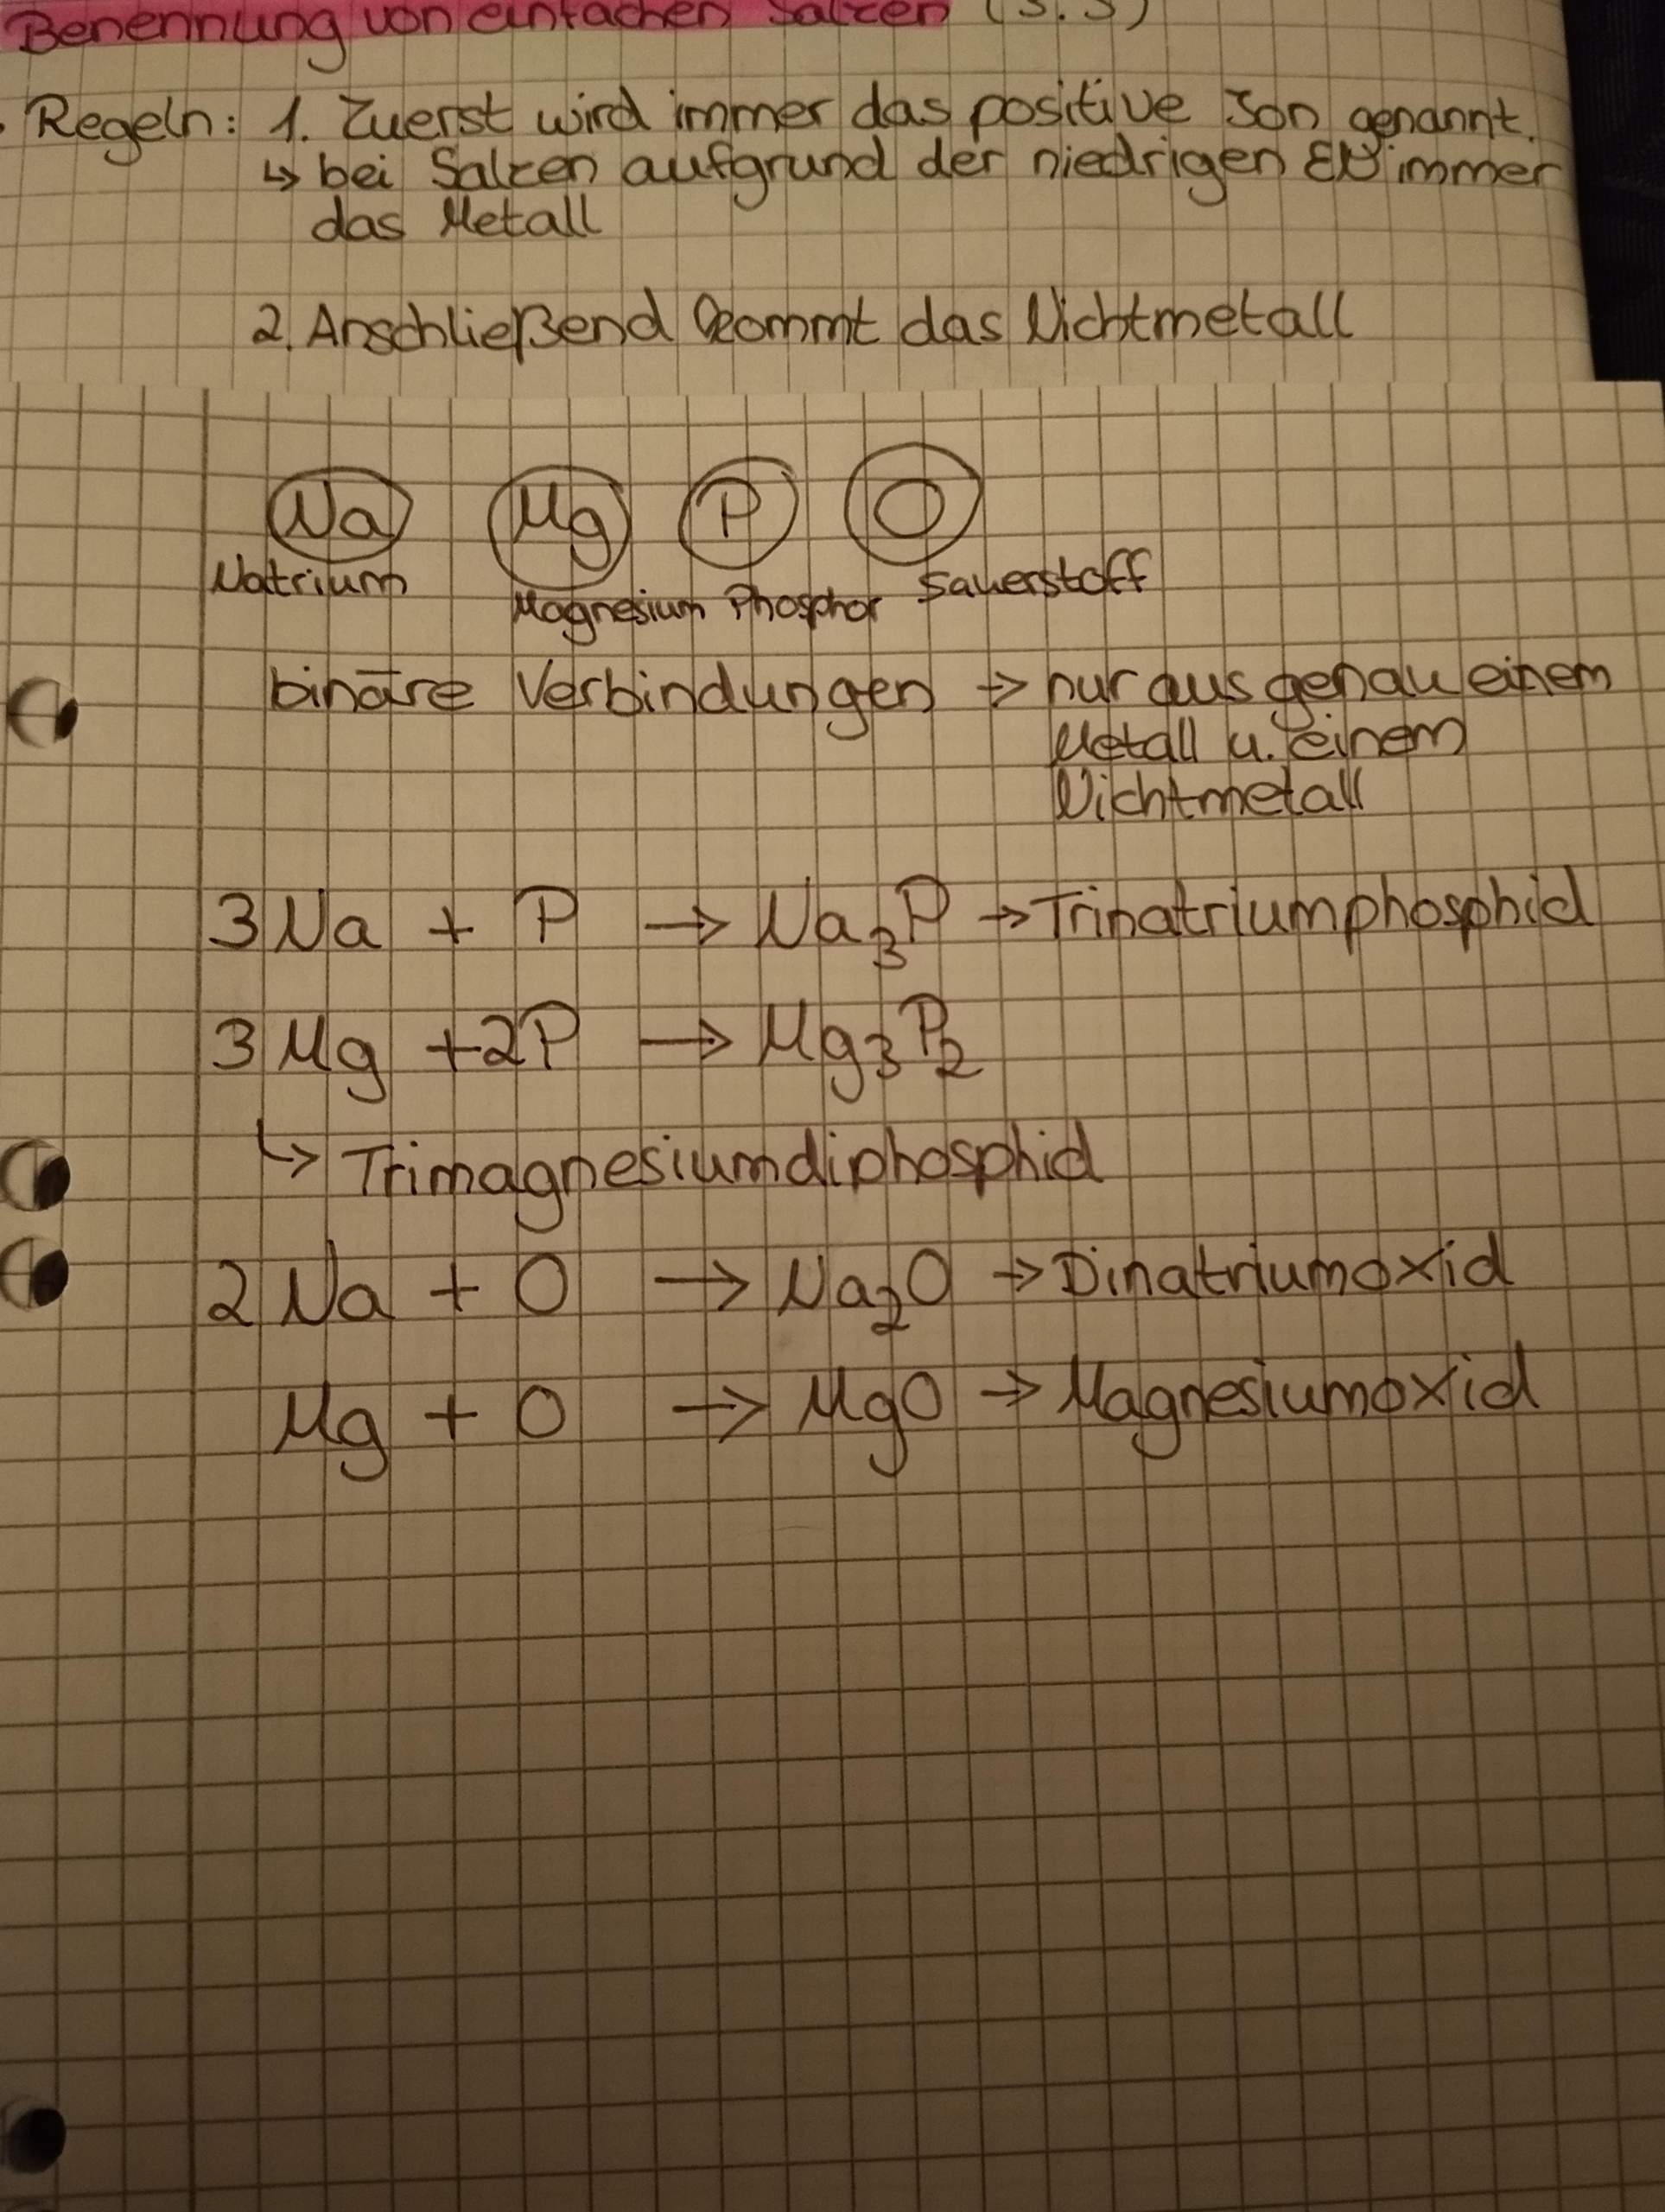 Benennung von einfachen Salzen (S. 5)
Regeln: 1. Zuerst wird immer das positive Ion genannt.
↳ bei Salzen aufgrund der niedrigen EN immer
das Metall
2. Anschließend kommt das Nichtmetall
Na Mg P O
Natrium Magnesium Phosphor Sauerstoff
binäre Verbindungen → nur aus genau einem
Metall u. einem
Nichtmetall
3 Na + P → Na₃P → Trinatriumphosphid
3 Mg + 2P → Mg₃P₂
↳ Trimagnesiumdiphosphid
2 Na + O → Na₂O → Dinatriumoxid
Mg + O → MgO → Magnesiumoxid